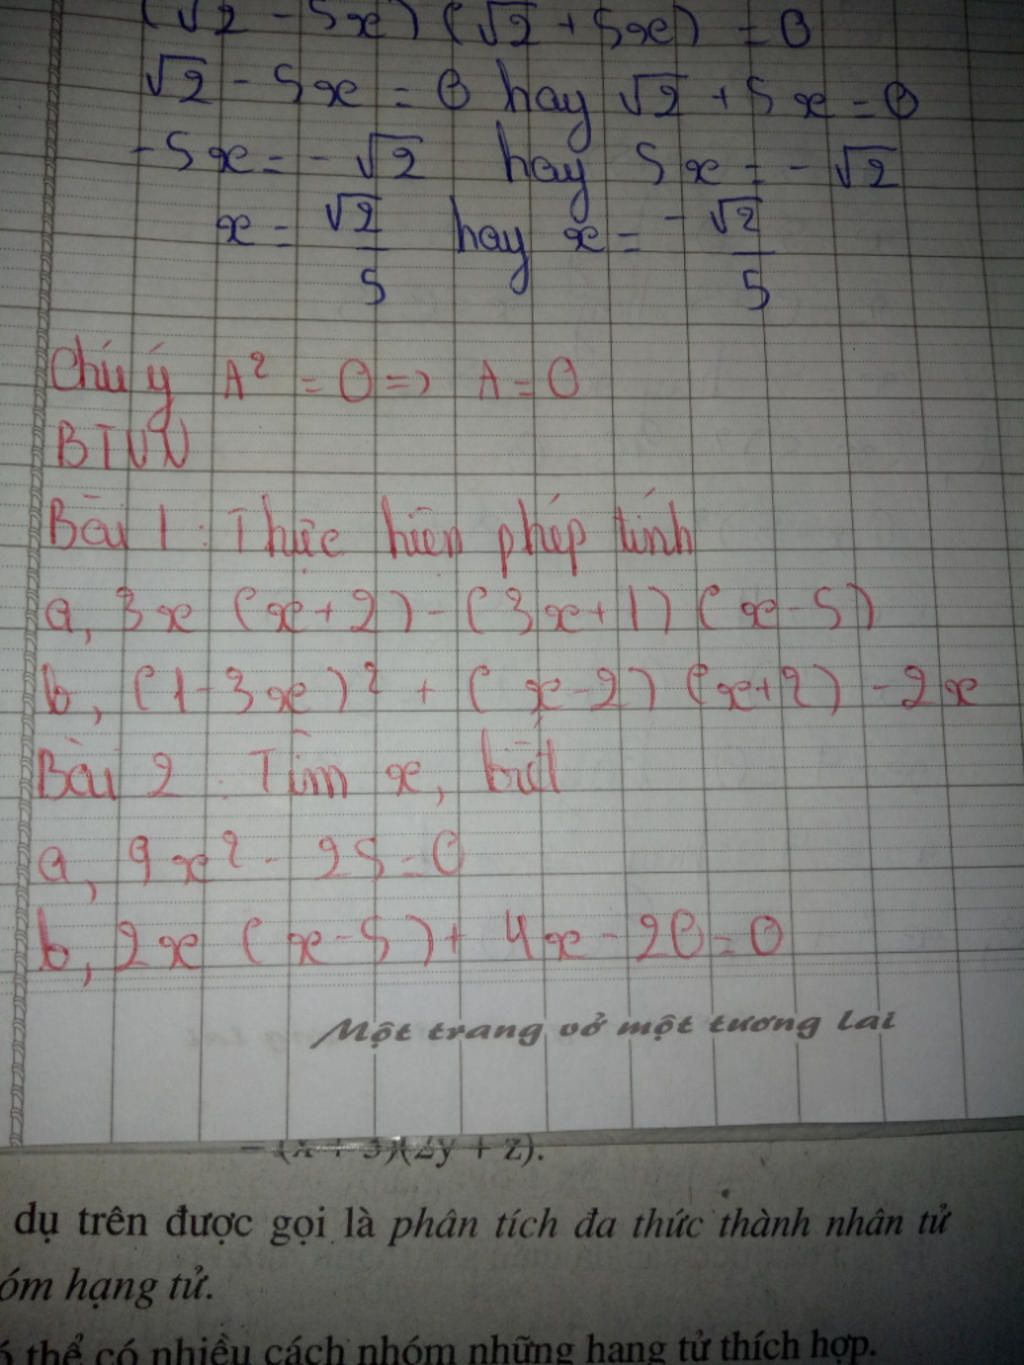 (√2 - 5x) (√2 + 5x) = 0
√2 - 5x = 0 hay √2 + 5x = 0
-5x = - √2 hay 5x = - √2
x = √2/5 hay x = - √2/5
Chú ý A² = 0 => A = 0
BTVN
Bài 1 : Thực hiện phép tính
a, 3x (x + 2) - (3x + 1) (x - 5)
b, (1 - 3x)² + (x - 2) (x + 2) - 2x
Bài 2 : Tìm x, biết
a, 9x² - 25 = 0
b, 2x (x - 5) + 4x - 20 = 0
Một trang vở một tương lai
- (x + 3)(2y + z).
dụ trên được gọi là phân tích đa thức thành nhân tử
óm hạng tử.
thể có nhiều cách nhóm những hạng tử thích hợp.